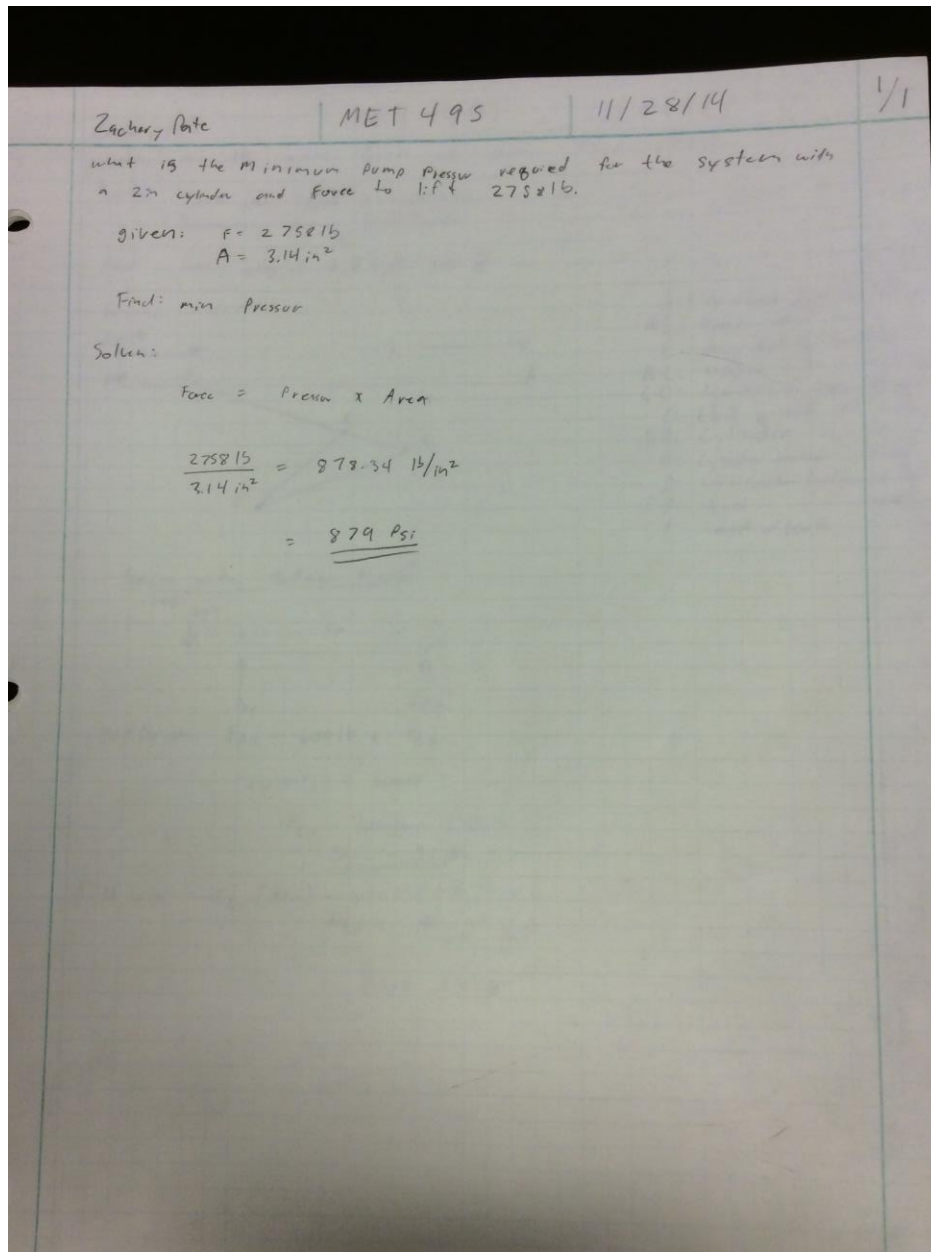 Zachary Pate MET 495 11/28/14 1/1
what is the Minimum Pump Pressur required for the system with
a 2in cylinder and Force to lift 2758lb.
given: F = 2758lb
A = 3.14 in²
Find: min Pressur
Solven:
Force = Pressur x Area
2758lb
3.14 in² = 878.34 lb/in²
= 879 Psi